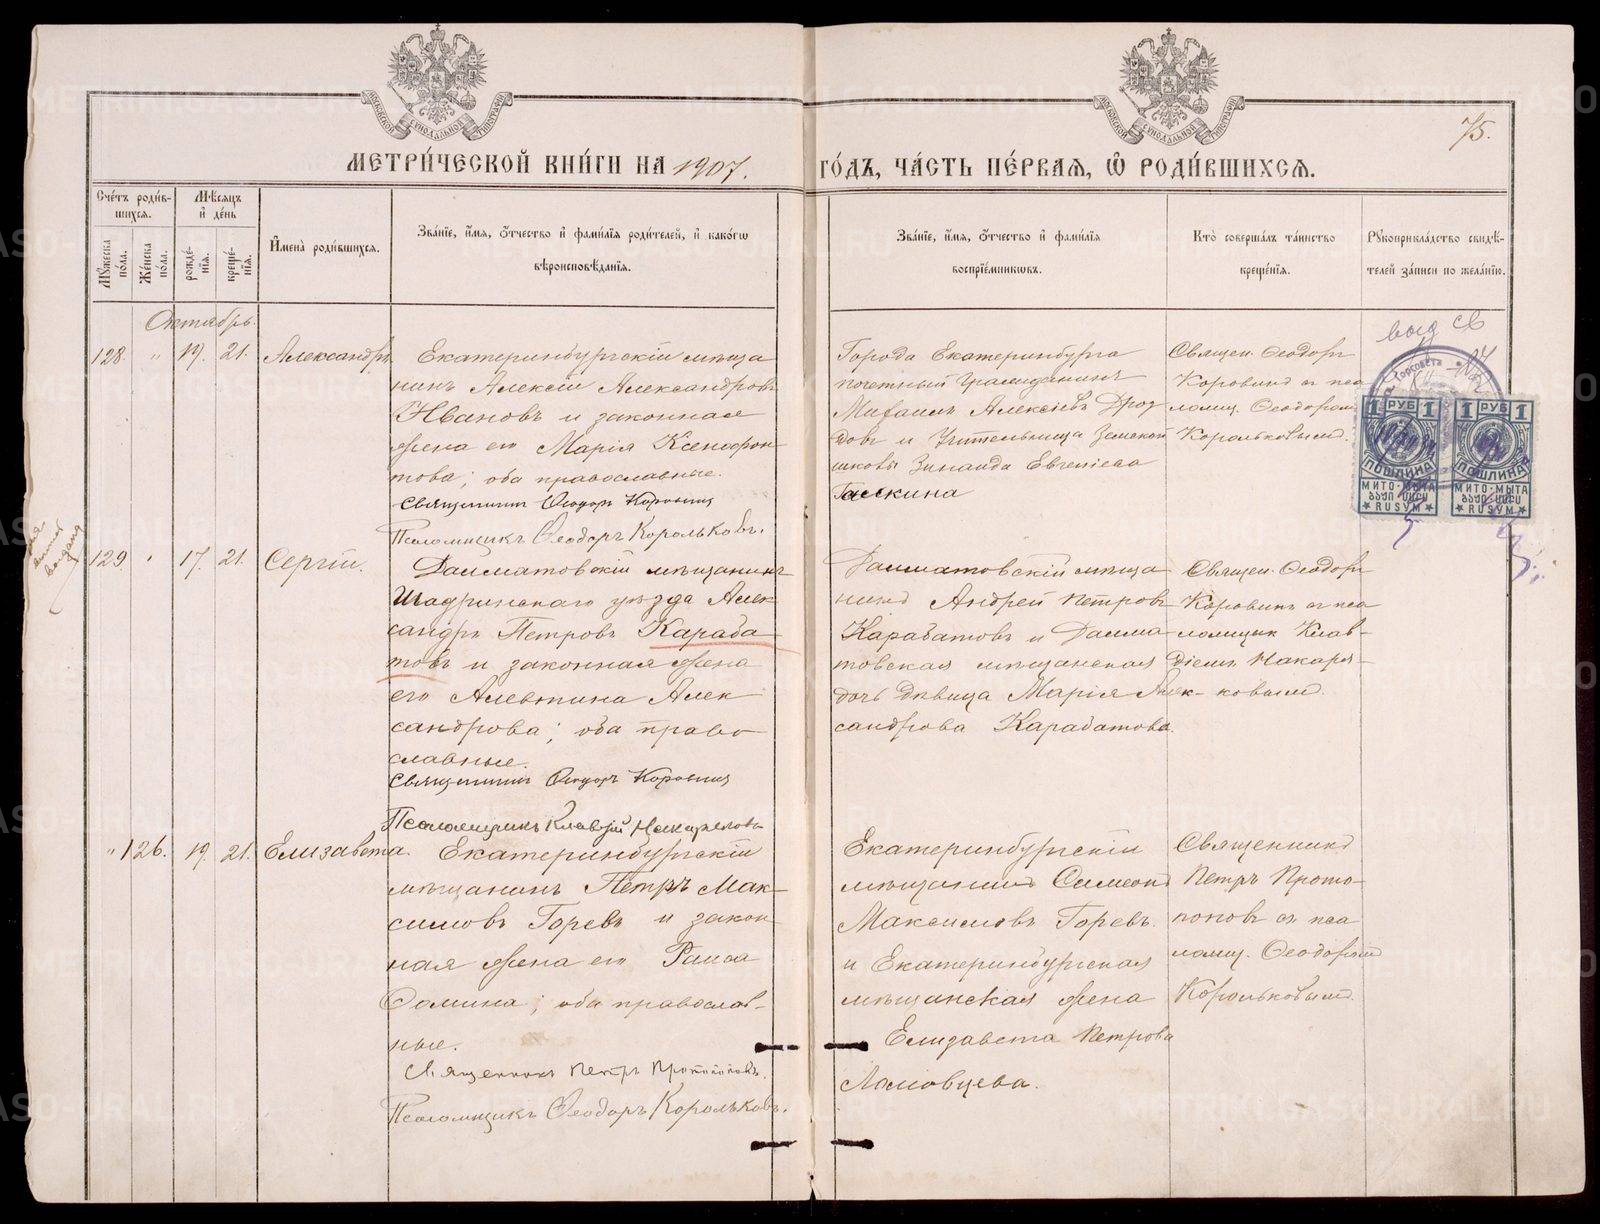 МЕТРИ́ЧЕСКОЙ КНИ́ГИ НА 1907. ГО́ДЪ, ЧА́СТЬ ПЕ́РВАЯ, Ѡ҆ РОДИ́ВШИХСЯ.
75.
МОСКОВСКОЙ СѴНОДАЛЬНОЙ ТИПОГРАФІИ
МОСКОВСКОЙ СѴНОДАЛЬНОЙ ТИПОГРАФІИ
Сче́тъ роди́в-
шихся.
Му́жеска по́ла.
Же́нска по́ла.
Мѣ́сяцъ
и де́нь
рожде́-
нія.
креще́-
нія.
Имена̀ роди́вшихся.
Зва́ніе, и́мя, о́тчество и фами́лія роди́телей, и како́гѡ
вѣроисповѣ́данія.
Зва́ніе, и́мя, о́тчество и фами́лія
воспріе́мникѡвъ.
Кто̀ соверша́лъ та́инство
креще́нія.
Рукоприкла́дство свидѣ́-
телей за́писи по жела́нію.
Октябрь.
128. " 19. 21. Александръ.
Екатеринбургскій мѣща
нинъ Алексій Александровъ
Ивановъ и законная
жена его Марія Ксенофон
това; оба православные.
Священникъ Ѳеодоръ Коровинъ
Псаломщикъ Ѳеодоръ Корольковъ.
Города Екатеринбурга
почетный гражданинъ
Михаилъ Алексіевъ Дроз
довъ и Учительница Земской
школы Зинаида Евгеніева
Галкина
Священ. Ѳеодоръ
Коровинъ съ пса
ломщ. Ѳеодоромъ
Корольковымъ.
выд св
1 РУБ 1
ПОШЛИНА
МИТО·МЫТА
RUSYM
1 РУБ 1
ПОШЛИНА
МИТО·МЫТА
RUSYM
129 " 17. 21. Сергій.
Далматовскій мѣщанинъ
Шадринскаго уѣзда Алек
сандръ Петровъ Караба
товъ и законная жена
его Алевтина Алек
сандрова; оба право
славные.
Священникъ Ѳеодоръ Коровинъ
Псаломщикъ Клавдій Накаряковъ
Далматовскій мѣща
нинъ Андрей Петровъ
Карабатовъ и Далма
товская мѣщанская
дочь дѣвица Марія Алек-
сандрова Карабатова.
Священ. Ѳеодоръ
Коровинъ съ пса
ломщик Клав-
діемъ Накаря-
ковымъ.
" 126. 19. 21. Елизавета.
Екатеринбургскій
мѣщанинъ Петръ Мак-
симовъ Горевъ и закон
ная жена его Раиса
Ѳомина; оба православ-
ные.
Священникъ Петръ Протопоповъ.
Псаломщикъ Ѳеодоръ Корольковъ.
Екатеринбургскій
мѣщанинъ Симеонъ
Максимовъ Горевъ.
и Екатеринбургская
мѣщанская жена
Елизавета Петрова
Ломовцева.
Священникъ
Петръ Прото-
поповъ съ пса
ломщ. Ѳеодоромъ
Корольковымъ.